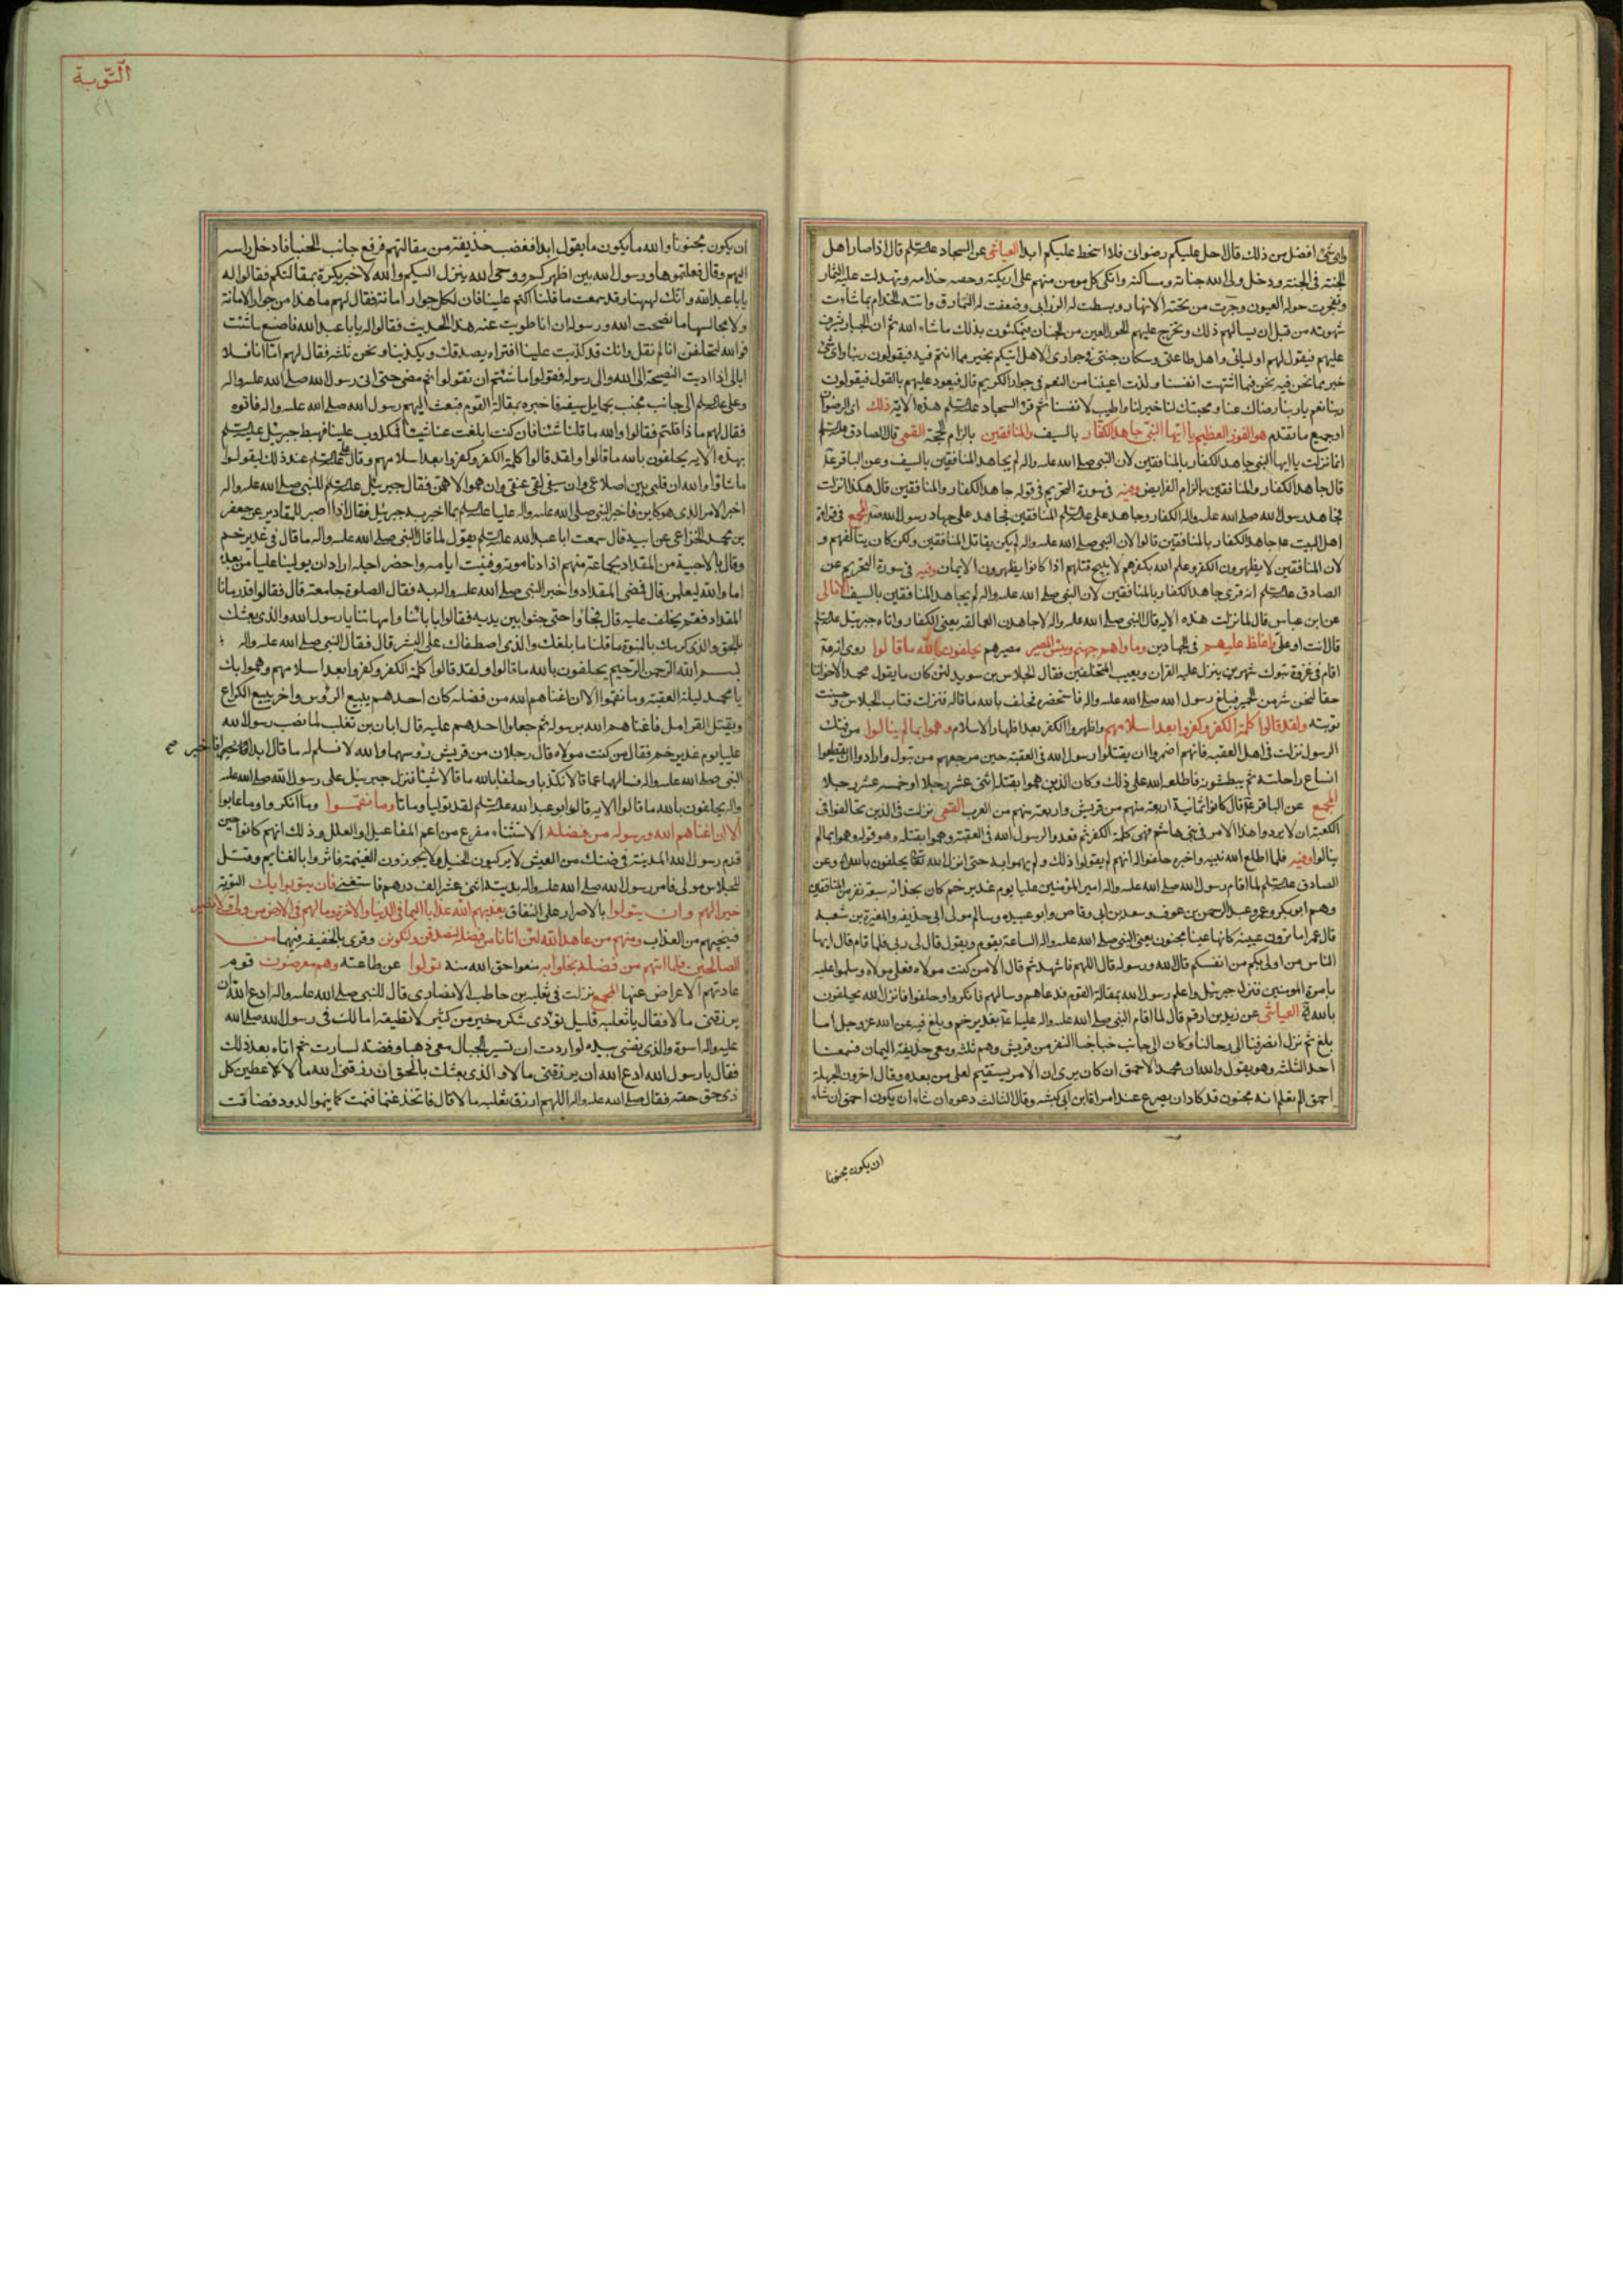 واى شئ افضل من ذلك قال احل عليكم رضوانى فلا اسخط عليكم ابدا العياشى عن السجاد علیه السلم قال اذا صار اهل
الجنة فى الجنة ودخل ولى الله جنانه ومساكنه واتكى كل مومن منهم على اريكته وحصه خدامه وتهدلت عليه الثمار
وتفجرت حوله العيون وجرت من تحته الانهار وبسطت له الزرابى وصففت له النمارق واتته الخدام بما شاءت
شهوته من قبل ان يسالهم ذلك ويخرج عليهم الحور العين من الجنان فيمكثون بذلك ماشاء الله ثم ان الجبار يشرف
عليهم فيقول لهم اوليائى واهل طاعتى وسكان جنتى فى جوارى الا هل انبئكم بخير مما انتم فيه فيقولون ربنا واى شئ
خير مما نحن فيه نحن فيما اشتهت انفسنا ولذت اعيننا من النعم فى جوار الكريم قال فيعود عليهم بالقول فيقولون
ربنا نعم يا ربنا رضاك عنا ومحبتك لنا خير لنا واطيب لانفسنا ثم قرء السجاد علیه السلم هذه الاية ذلك اى الرضوان
او جميع ما تقدم هو الفوز العظيم يا ايها النبى جاهد الكفار بالسيف والمنافقين بالزام الحجة القمى قال الصادق علیه السلم
انما نزلت يا ايها النبى جاهد الكفار بالمنافقين لان النبى صلى الله عليه واله لم يجاهد المنافقين بالسيف وعن الباقر ع
قال جاهد الكفار والمنافقين بالزام الفرايض وفيه فى سورة التحريم فى قوله جاهد الكفار والمنافقين قال هكذا نزلت
فجاهد رسول الله صلى الله عليه واله الكفار وجاهد على علیه السلم المنافقين فجاهد على جهاد رسول الله ص المجمع فى قراءة
اهل البيت ع جاهد الكفار بالمنافقين قالوا لان النبى صلى الله عليه واله لم يكن يقاتل المنافقين ولكن كان يتالفهم و
لان المنافقين لا يظهرون الكفر وعلم الله بكفرهم لا يبيح قتلهم اذا كانوا يظهرون الايمان وفيه فى سورة التحريم عن
الصادق علیه السلم انه قرى جاهد الكفار بالمنافقين لان النبى صلى الله عليه واله لم يجاهد المنافقين بالسيف الامالى
عن ابن عباس قال لما نزلت هذه الاية قال النبى صلى الله عليه واله لاجاهدن العمالقة يعنى الكفار واتاه جبرئيل علیه السلم
قال انت او على واغلظ عليهم فى الجهادين وماواهم جهنم وبئس المصير مصيرهم يحلفون بالله ما قالوا روى انه ع
اقام فى غزوة تبوك شهرين ينزل عليه القران ويعيب المتخلفين فقال الجلاس بن سويد لئن كان ما يقول محمد لاخواننا
حقا لنحن شر من الحمير فبلغ رسول الله صلى الله عليه واله فاستحضره فحلف بالله ما قاله فنزلت فتاب الجلاس وحسنت
توبته ولقد قالوا كلمة الكفر وكفروا بعد اسلامهم واظهروا الكفر بعد اظهار الاسلام وهموا بما لم ينالوا من فتك
الرسول نزلت فى اهل العقبة فانهم اضمروا ان يقتلوا رسول الله فى العقبة حين مرجعهم من تبوك وارادوا ان يقطعوا
انساع راحلته ثم يبطشون فاطلعه الله على ذلك وكان الذين هموا بقتله اثنى عشر رجلا او خمسه عشر رجلا
المجمع عن الباقر ع قال كانوا ثمانية اربعة منهم من قريش واربعة منهم من العرب القمى نزلت فى الذين تحالفوا فى
الكعبة ان لا يردوا هذا الامر فى بنى هاشم فهى كلمة الكفر ثم قعدوا لرسول الله فى العقبة وهموا بقتله وهو قوله وهموا بما لم
ينالوا وفيه فلما اطلع الله نبيه واخبره حلفوا له انهم لم يقولوا ذلك ولم يهموا به حتى انزل الله تعالى يحلفون بالله الاية وعن
الصادق علیه السلم لما اقام رسول الله صلى الله عليه واله امير المؤمنين عليا يوم غدير خم كان بحذائه سبعة نفر من المنافقين
وهم ابوبكر وعمر وعبد الرحمن بن عوف وسعد بن ابى وقاص وابو عبيده وسالم مولى ابى حذيفه والمغيرة بن شعبه
قال عمر اما ترون عينيه كانها عينا مجنون يعنى النبى صلى الله عليه واله الساعة يقوم ويقول قال لى ربى فلما قام قال ايها
الناس من اولى بكم من انفسكم قالوا الله ورسوله قال اللهم فاشهد ثم قال الا من كنت مولاه فعلى مولاه وسلموا عليه
بامرة المومنين فنزل جبرئيل واعلم رسول الله بمقالة القوم فدعاهم وسالهم فانكروا وحلفوا فانزل الله يحلفون
بالله الاية العياشى عن زيد بن ارقم قال لما اقام النبى صلى الله عليه واله عليا ع بغدير خم وبلغ فيه عن الله عز وجل ما
بلغ ثم نزل انصرفنا الى رحالنا وكان الى جانب خبائنا نفر من قريش وهم ثلثه ومعى حذيفة اليمان فسمعنا
احد الثلثة وهو يقول والله ان محمدا لاحمق ان كان يرى ان الامر يستقيم لعلى من بعده وقال اخرون اتجهله
احمق الم تعلم انه مجنون قد كاد ان يصرع عند امراة ابن ابى كبشه وقال الثالث دعوه ان شاء ان يكون احمق ان شاء
ان يكون مجنونا
التّوبة
ان يكون مجنونا والله ما يكون ما يقول ابدا فغضب حذيفة من مقالتهم فرفع جانب الخباء فادخل راسه
اليهم وقال فعلتموها ورسول الله بين اظهركم ووحى الله ينزل اليكم والله لاخبرنه بكرة بمقالتكم فقالوا له
يا ابا عبد الله وانك لههنا وقد سمعت ما قلنا اكتم علينا فان لكل جوار امانة فقال لهم ما هذا من جوار الامانة
ولا مجالسها ما نصحت الله ورسوله ان انا طويت عنه هذا الحديث فقالوا له يا ابا عبد الله فاصنع ما شئت
فوالله لنحلفن انا لم نقل وانك قد كذبت علينا افتراه يصدقك ويكذبنا ونحن ثلثه فقال لهم اما انا فلا
ابالى اذا اديت النصيحة الى الله والى رسوله فقولوا ما شئتم ان تقولوا ثم مضى حتى اتى رسول الله صلى الله عليه واله
وعلى علیه السلم الى جانب محتب بحمايل سيفه فاخبره بمقالة القوم فبعث اليهم رسول الله صلى الله عليه واله فاتوه
فقال لهم ماذا قلتم فقالوا والله ما قلنا شئا فان كنت ابلغت عنا شيئا فمكذوب علينا فهبط جبرئيل علیه السلم
بهذه الاية يحلفون بالله ما قالوا ولقد قالوا كلمة الكفر وكفروا بعد اسلامهم وقال على علیه السلم عند ذلك ليقولوا
ما شاؤا والله ان قلبى بين اضلاعى وان سيفى لفى عنقى وان هموا لاهمن فقال جبرئيل علیه السلم للنبى صلى الله عليه واله
اخبر الامر الذى هو كاين فاخبر النبى صلى الله عليه واله عليا علیه السلم بما اخبره به جبرئيل فقال اذا اصبر للمقادير عن جعفر
بن محمد الخزاعى عن ابيه قال سمعت ابا عبد الله علیه السلم يقول لما قال النبى صلى الله عليه واله ما قال فى غدير خم
اما والله ليعلمن قال فمضى المقداد واخبر النبى صلى الله عليه واله به فقال الصلوة جامعة قال فقالوا قد رمانا
المقداد فقوموا نحلف عليه قال فجاؤا حتى جثوا بين يديه فقالوا بابائنا وامهاتنا يا رسول الله والذى بعثك
بالحق والذى كرمك بالنبوة ما قلنا ما بلغك والذى اصطفاك على البشر قال فقال النبى صلى الله عليه واله
بسم الله الرحمن الرحيم يحلفون بالله ما قالوا ولقد قالوا كلمة الكفر وكفروا بعد اسلامهم وهموا بك
يا محمد ليلة العقبة وما نقموا الا ان اغناهم الله من فضله كان احدهم يبيع الرؤس واخر يبيع الكراع
ويفتل القرامل فاغناهم الله برسوله ثم جعلوا احدهم عليه قال ابان بن تغلب لما نصب رسول الله
عليا يوم غدير خم فقال من كنت مولاه قال رجلان من قريش رؤسهما والله لا نسلم له ما قال ابدا فاخبر
النبى صلى الله عليه واله فسالهما عما قالا فكذبا وحلفا بالله ما قالا شيئا فنزل جبرئيل على رسول الله صلى الله عليه
واله يحلفون بالله ما قالوا الاية قال ابو عبد الله علیه السلم لقد توليا وما تابا وما نقموا وما انكروا وما عابوا
الا ان اغناهم الله ورسوله من فضله الاستثناء مفرغ من اعم المفاعيل او العلل وذلك انهم كانوا حين
قدم رسول الله المدينة فى ضنك من العيش لا يركبون الخيل ولا يحوزون الغنيمة فاثروا بالغنايم وقتل
للجلاس مولى فامر رسول الله صلى الله عليه واله بديته اثنى عشر الف درهم فاستغنى فان يتوبوا يك التوبة
خيرا لهم وان يتولوا بالاصرار على النفاق يعذبهم الله عذابا اليما فى الدنيا والاخرة وما لهم فى الارض من ولى ولا نصير
فينجيهم من العذاب ومنهم من عاهد الله لئن اتانا من فضله لنصدقن ولنكونن وقرى بالخفيفه فيهما من
الصالحين فلما اتيهم من فضله بخلوا به منعوا حق الله منه وتولوا عن طاعته وهم معرضون قوم
عادتهم الاعراض عنها المجمع نزلت فى ثعلبة بن حاطب الانصارى قال للنبى صلى الله عليه واله ادع الله ان
يرزقنى مالا فقال يا ثعلبه قليل تؤدى شكره خير من كثير لا تطيقه اما لك فى رسول الله صلى الله
عليه واله اسوة والذى نفسى بيده لو اردت ان تسير الجبال معى ذهبا وفضة لسارت ثم اتاه بعد ذلك
فقال يا رسول الله ادع الله ان يرزقنى مالا والذى بعثك بالحق ان رزقنى الله مالا لاعطين كل
ذى حق حقه فقال صلى الله عليه واله اللهم ارزق ثعلبه مالا قال فاتخذ غنما فنمت كما ينموا الدود فضاقت